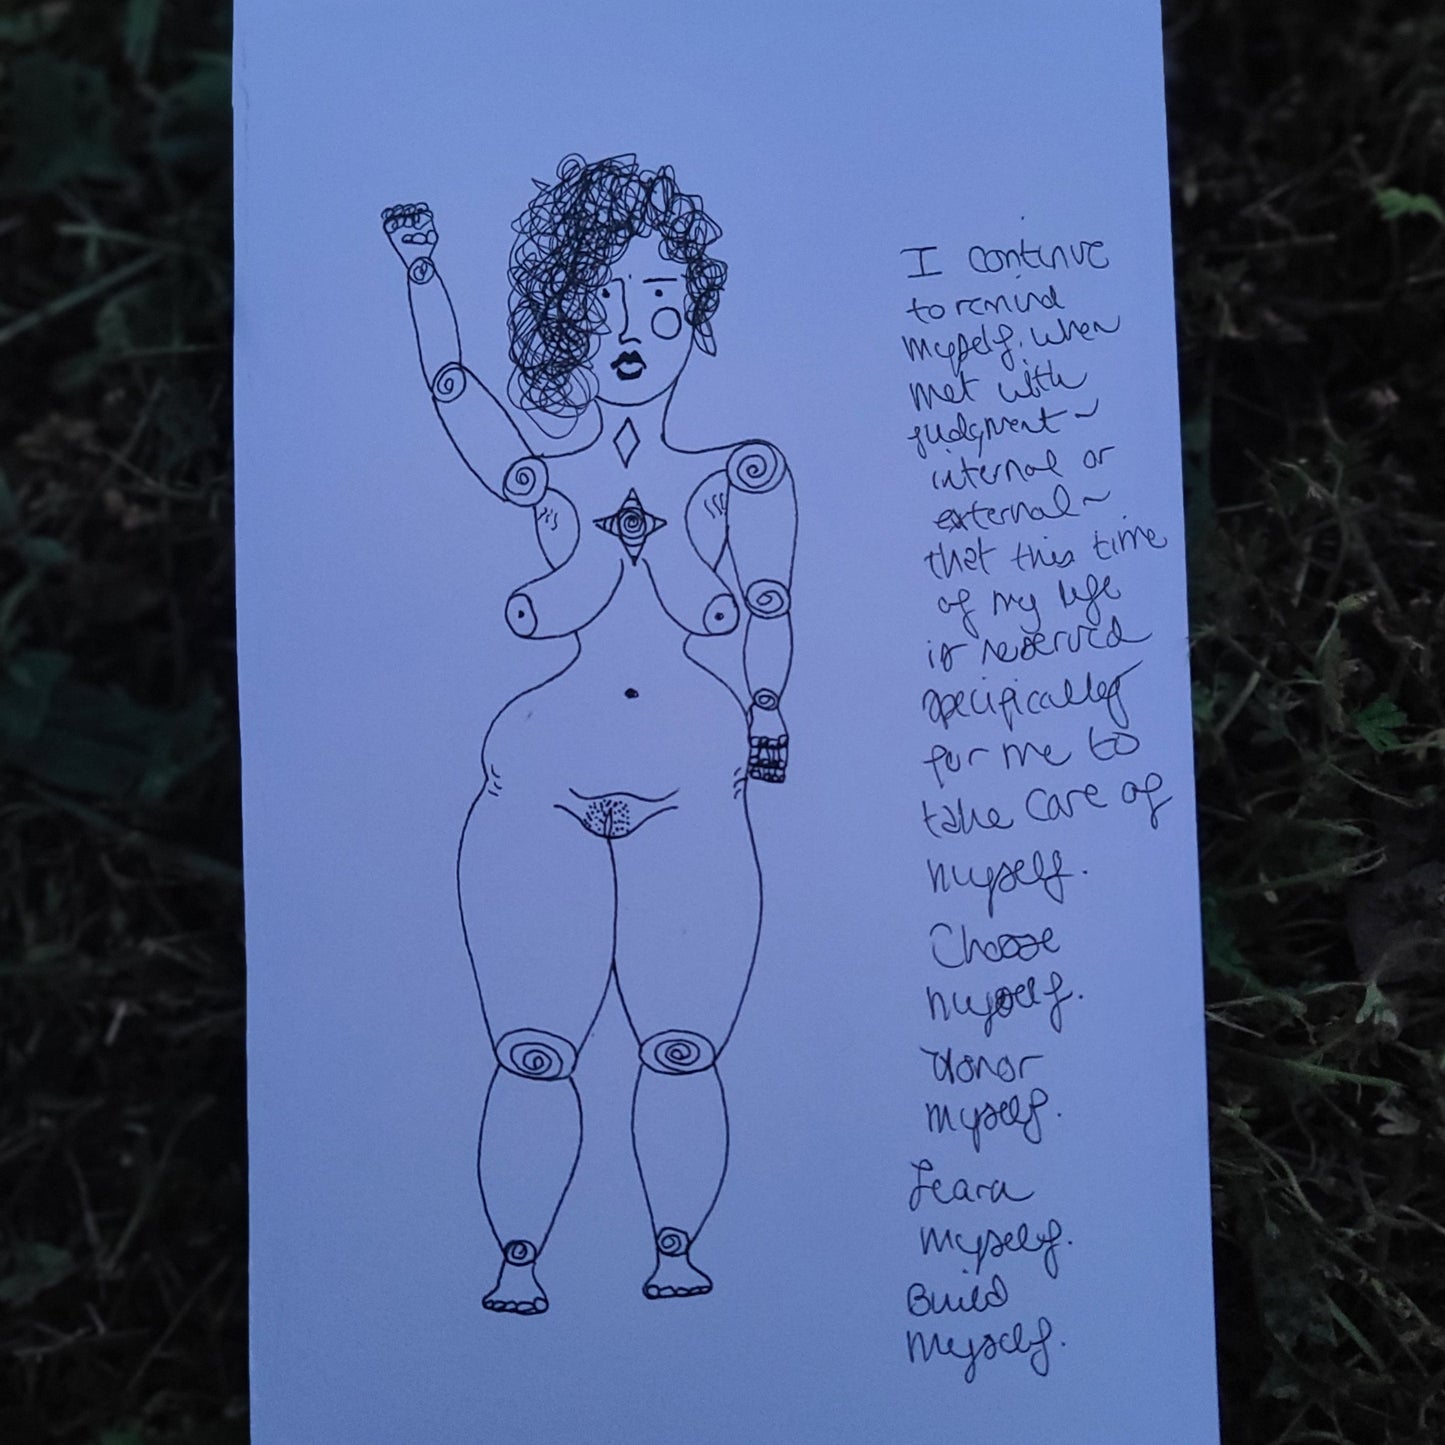 I continue
to remind
myself, when
met with
judgment ~
internal or
external ~
that this time
of my life
is reserved
specifically
for me to
take care of
myself.
Choose
myself.
Honor
myself.
Learn
myself.
Build
myself.